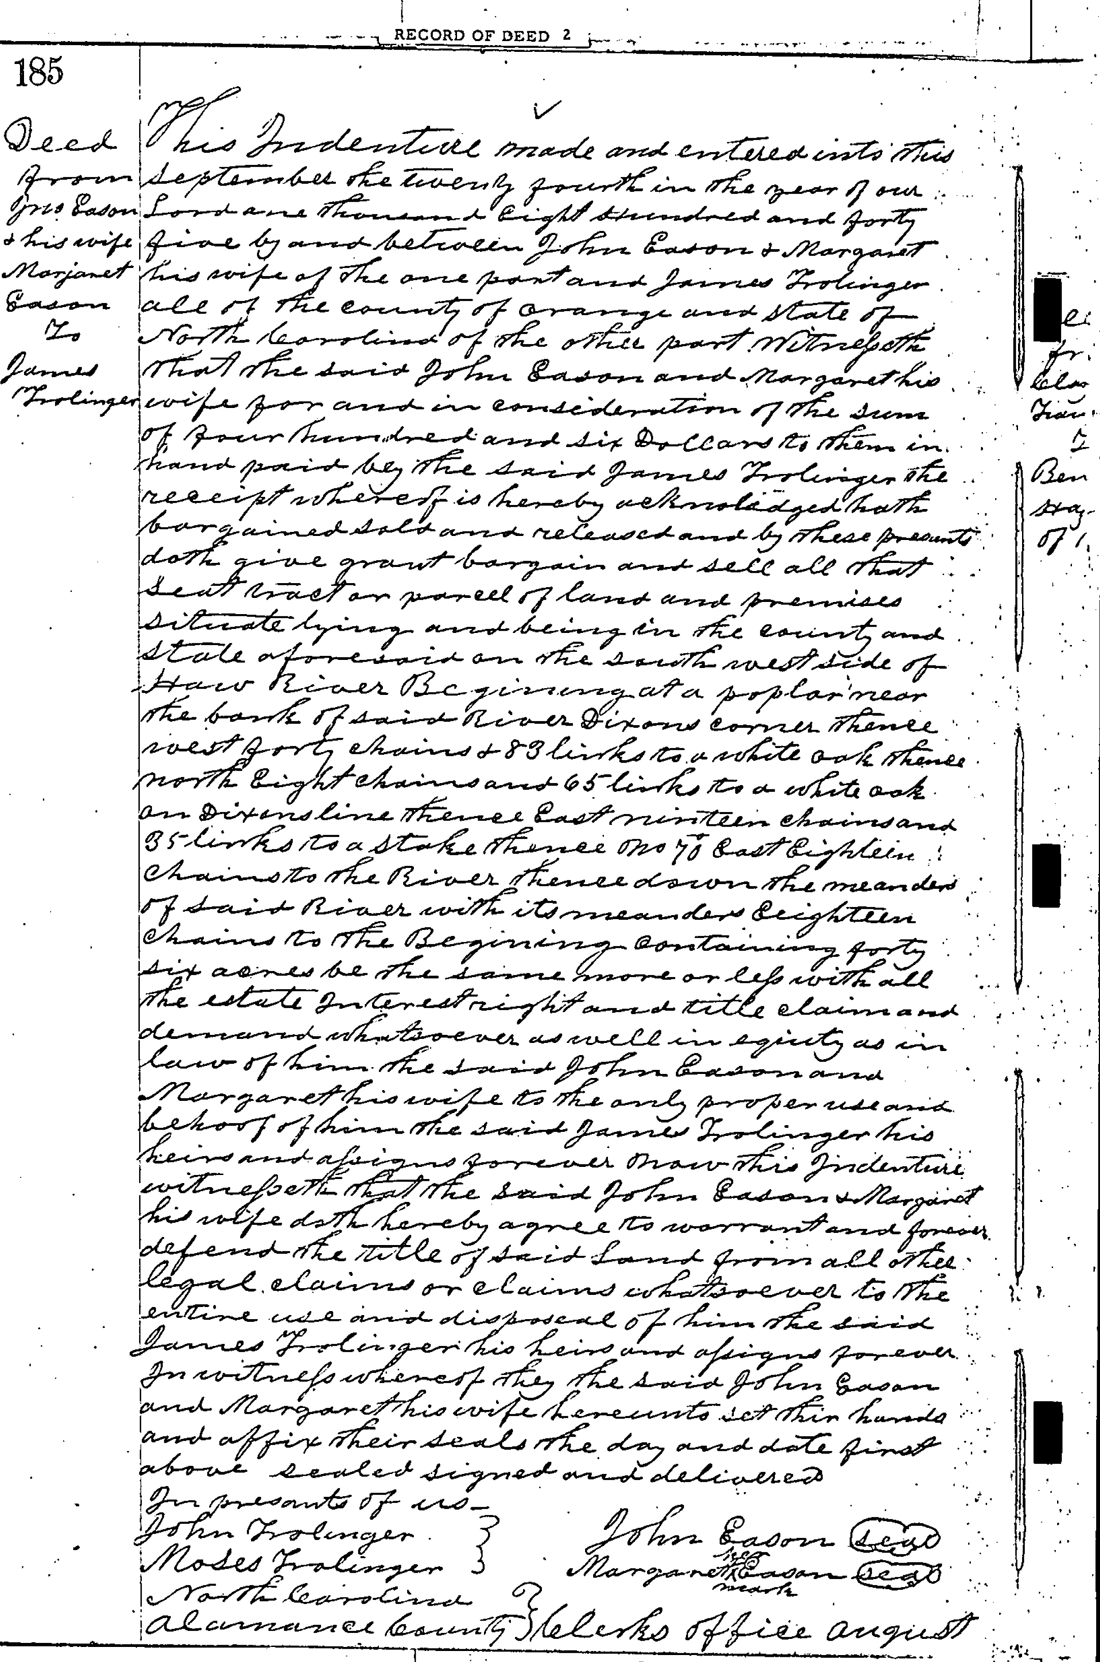 RECORD OF DEED 2
185
Deed
from
Jno. Eason
& his wife
Marjaret
Eason
To
James
Trolinger
This Indenture made and entered into this
September the twenty fourth in the year of our
Lord one thousand Eight Hundred and forty
five by and between John Eason & Margaret
his wife of the one part and James Trolinger
all of the county of orange and state of
North Carolina of the other part. Witnesseth
that the said John Eason and Margaret his
wife for and in consideration of the sum
of four hundred and six Dollars to them in
hand paid bey the said James Trolinger the
receipt whereof is hereby acknoledged hath
bargained sold and released and by these presents
doth give grant bargain and sell all that
Seat tract or parcel of land and premises
situate lying and being in the county and
state aforesaid on the south west side of
Haw River Begining at a poplar near
the bank of said River Dixons corner thence
west forty chains & 83 links to a white oak thence
north Eight chains and 65 links to a white oak
on Dixons line thence East ninteen chains and
35 links to a stake thence No 70 East Eighteen
Chains to the River thence down the meanders
of said River with its meanders Eeighteen
chains to the Begining containing forty
six acres be the same more or less with all
the estate Interest right and title claim and
demand whatsoever as well in equity as in
law of him the said John Eason and
Margaret his wife to the only proper use and
behoof of him the said James Trolinger his
heirs and assigns forever Now this Indenture
witnesseth that the said John Eason & Margaret
his wife doth hereby agree to warrant and forever
defend the title of said Land from all other
legal claims or claims whatsoever to the
entire use and disposeal of him the said
James Trolinger his heirs and assigns forever
In witness whereof they the said John Eason
and Margaret his wife hereunto set thir hands
and affix their seals the day and date first
above sealed signed and delivered
In presants of us
John Trolinger
John Eason seal
Moses Trolinger
her
Margaret X Eason seal
mark
North Carolina
Alamance County } Clerks office August
fr.
Clar
Ben
Hay
of